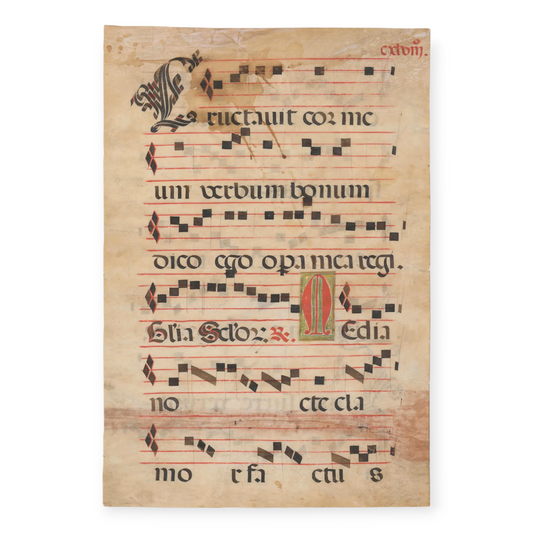 cxlviij.
Eructauit cor me
um verbum bonum
dico ego opa mea regi.
Glia Sclor. ℟. Media
no cte cla
mo r fa ctu s